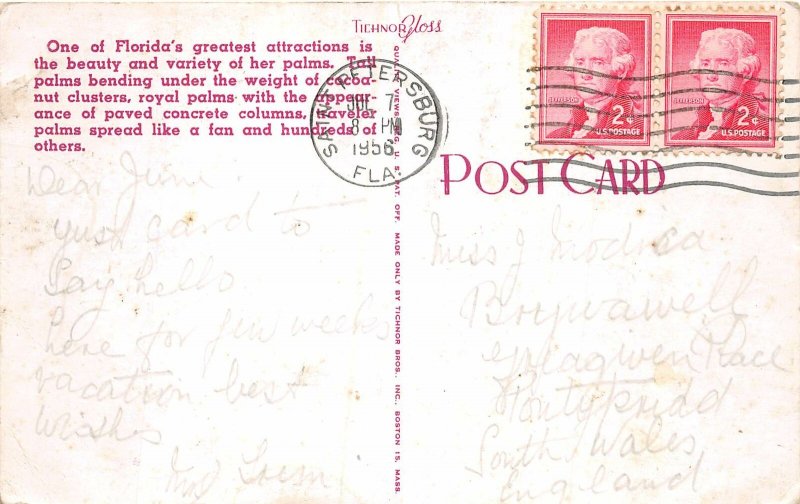 TICHNOR Gloss
One of Florida's greatest attractions is
the beauty and variety of her palms. Tall
palms bending under the weight of cocoa-
nut clusters, royal palms with the appear-
ance of paved concrete columns, traveler
palms spread like a fan and hundreds of
others.
SAINT PETERSBURG
JUL 7
8 PM
1956
FLA.
QUALITY VIEWS REG. U. S. PAT. OFF. MADE ONLY BY TICHNOR BROS., INC., BOSTON 15, MASS.
JEFFERSON
2¢
U.S. POSTAGE
JEFFERSON
2¢
U.S. POSTAGE
POST CARD
Dear June.
just card to
Say hello
here for few weeks
vacation best
wishes
Miss J Modica
Pontypridd
South Wales
England